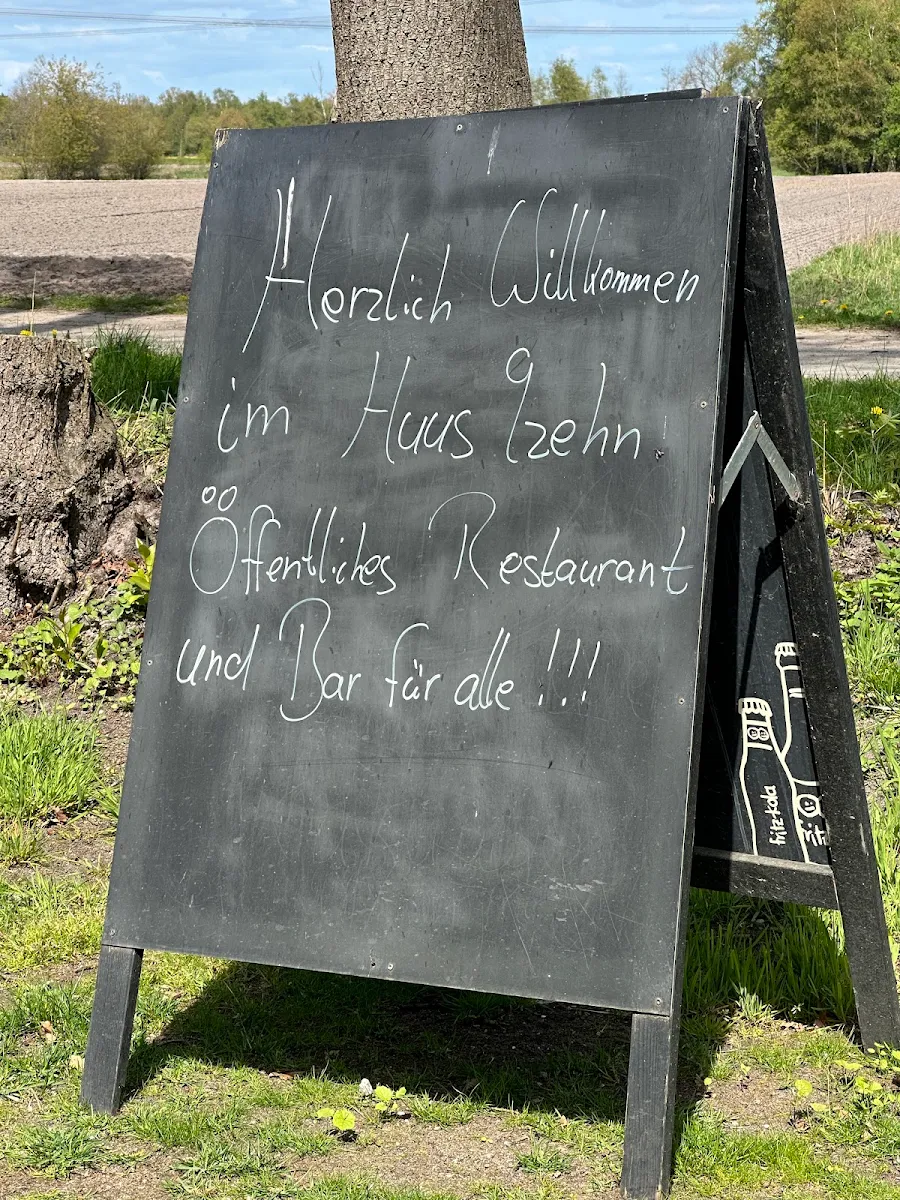 Herzlich Willkommen
im Haus 9zehn
Öffentliches Restaurant
und Bar für alle !!!
fritz-kola